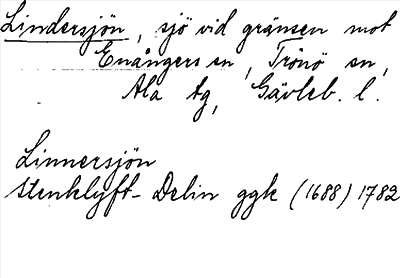 Lindersjön, sjö vid gränsen mot
Enångers sn, Trönö sn,
Ala tg, Gävleb. l.
Linnersjön
Stenklyft - Delin ggk (1688) 1782